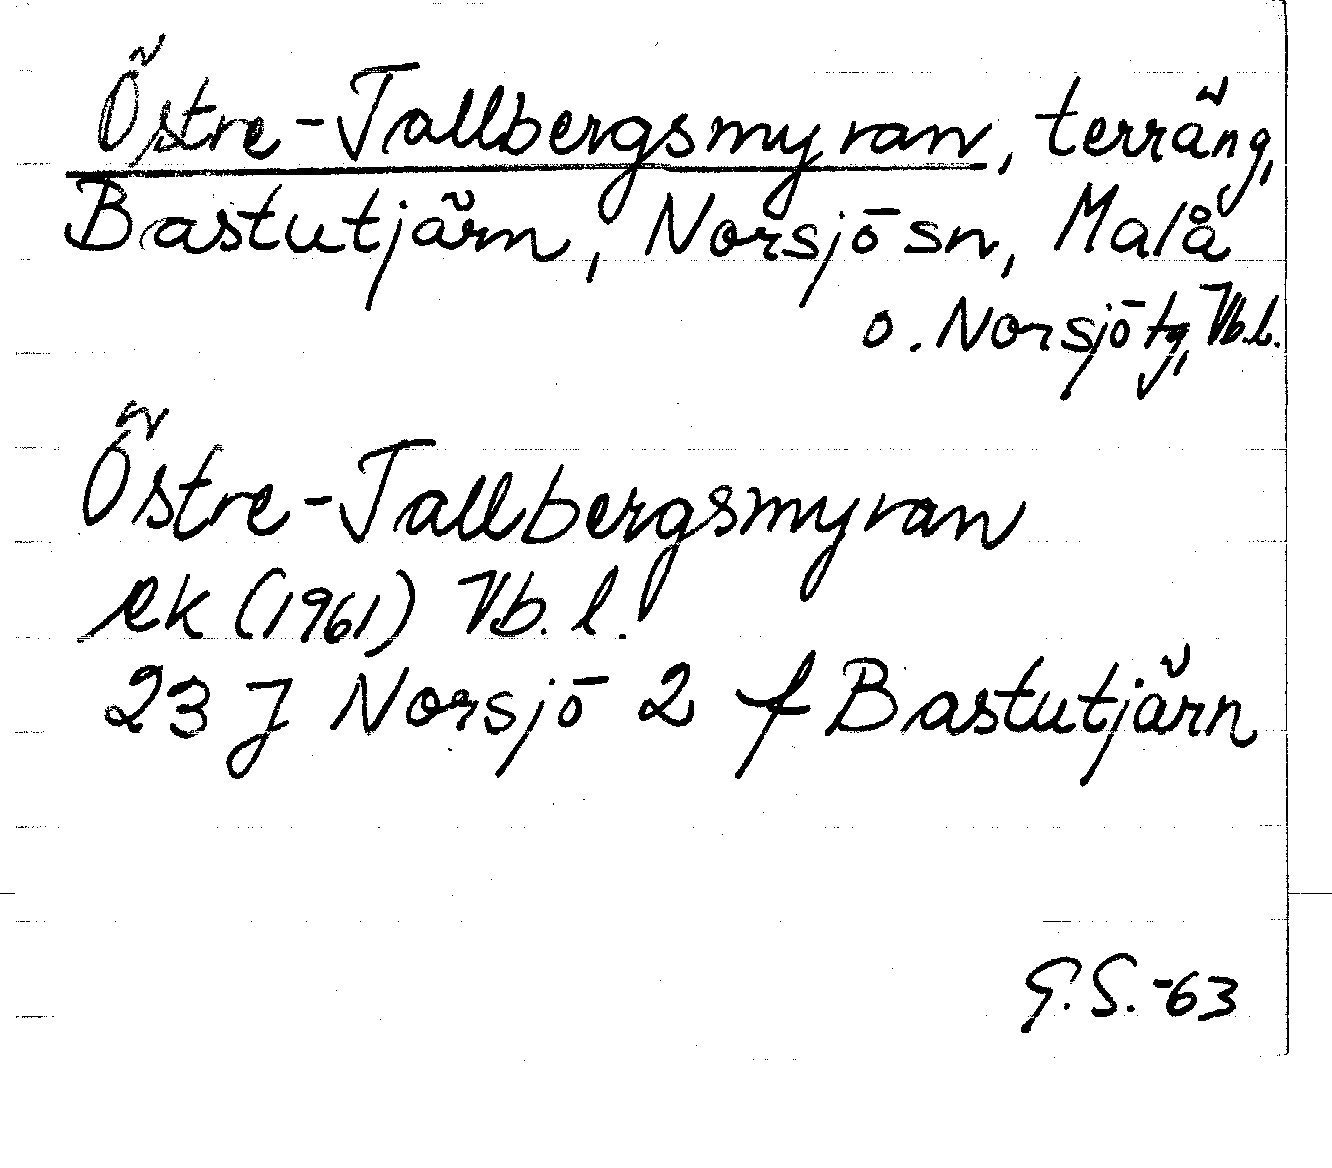 Östre-Tallbergsmyran, terräng,
Bastutjärn, Norsjö sn, Malå
o. Norsjö tg, Vb.l.
Östre-Tallbergsmyran
ek (1961) Vb. l.
23 J Norsjö 2 f Bastutjärn
G.S. -63